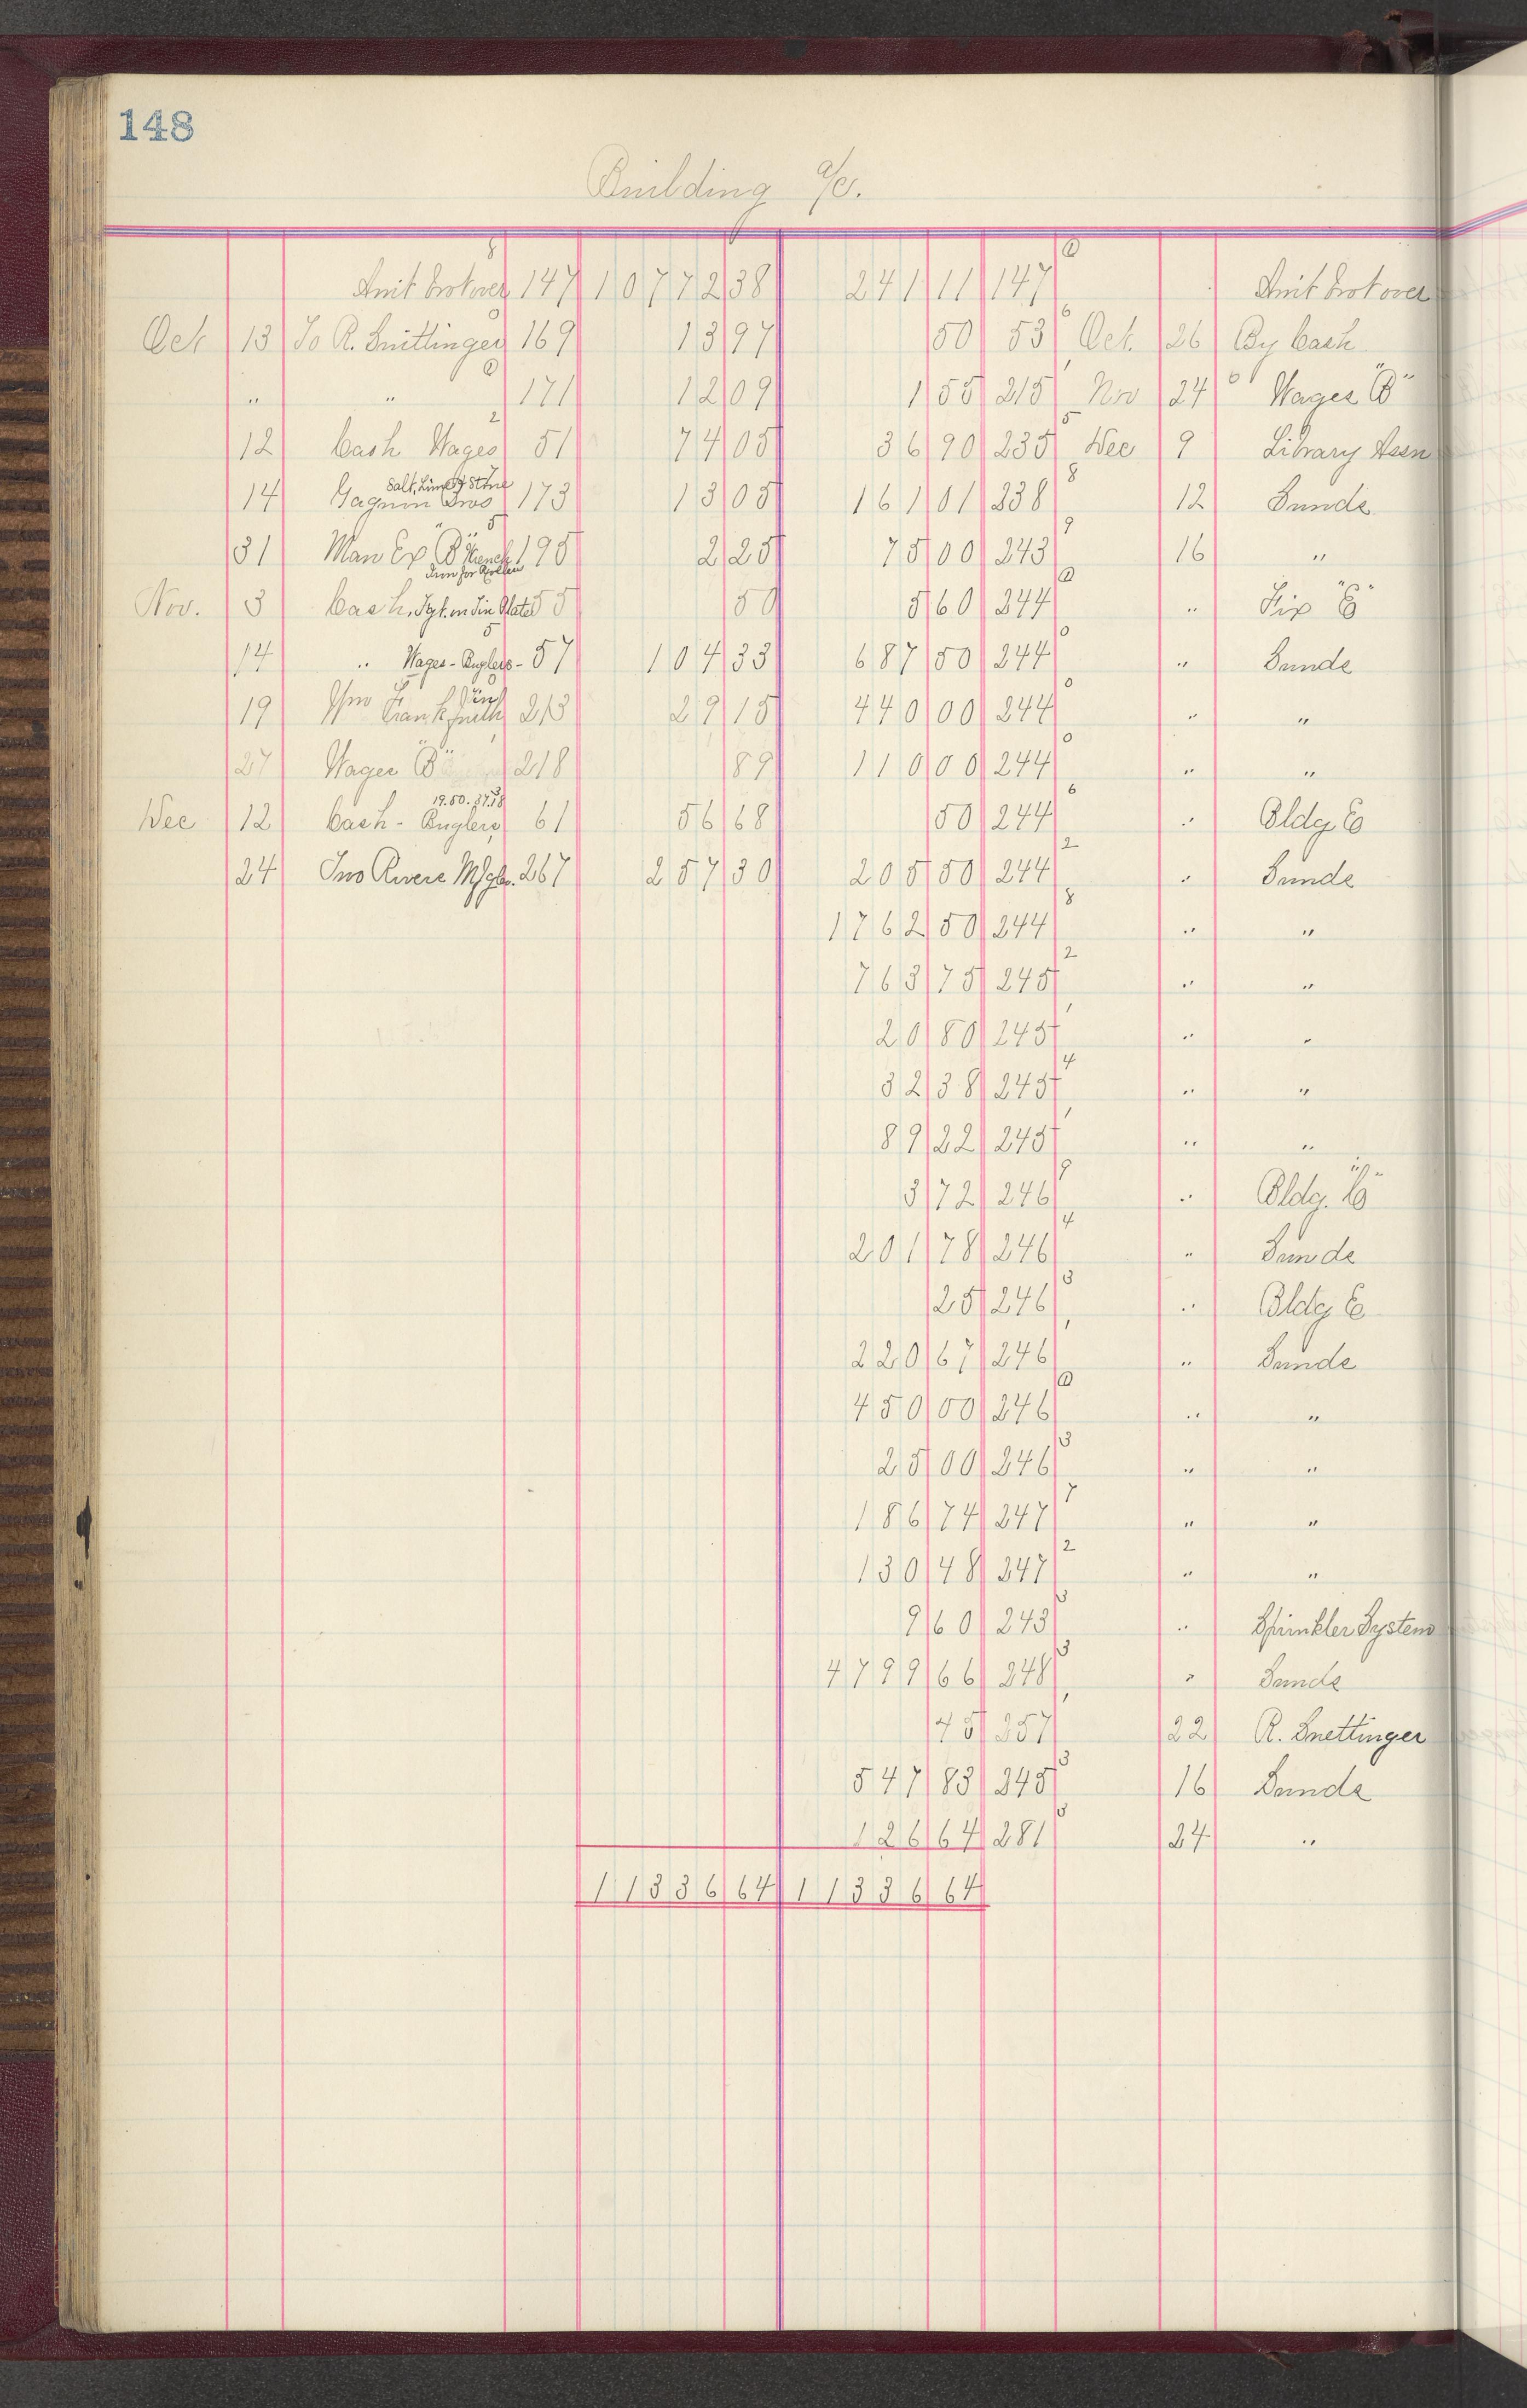 148
Building a/c.
Amt brot over 147 10772 38 241 11 147 Amt brot over
Oct 13 To R. Snettinger 169 13 97 50 53 Oct. 26 By Cash
" " 171 12 09 1 55 215 Nov 24 Wages "B"
12 Cash Wages 51 74 05 36 90 235 Dec 9 Library Assn
Salt, Lime & Stone
14 Gagnon Bros 173 13 05 161 01 238 12 Sunds
31 Man Ex "B" 195 2 25 75 00 243 16 "
Nov. 3 Cash, Fgt. on Tin Plates 55 50 5 60 244 " Fix "E"
14 " Wages - Buglers - 57 104 33 687 50 244 " Sunds
19 Wm Frankfurth 213 29 15 440 00 244 " "
27 Wages "B" 218 89 110 00 244 " "
19.50. 37.18
Dec 12 Cash - Buglers 61 56 68 50 244 " Bldg E
24 Two Rivers Mfg Co. 267 257 30 205 50 244 " Sunds
1762 50 244 " "
763 75 245 " "
20 80 245 " "
32 38 245 " "
89 22 245 " "
3 72 246 " Bldg. "E"
201 78 246 " Sunds
25 246 " Bldg E
220 67 246 " Sunds
450 00 246 " "
25 00 246 " "
186 74 247 " "
130 48 247 " "
9 60 243 " Sprinkler System
4799 66 248 " Sunds
45 257 22 R. Snettinger
547 83 245 16 Sunds
126 64 281 24 "
11336 64 11336 64